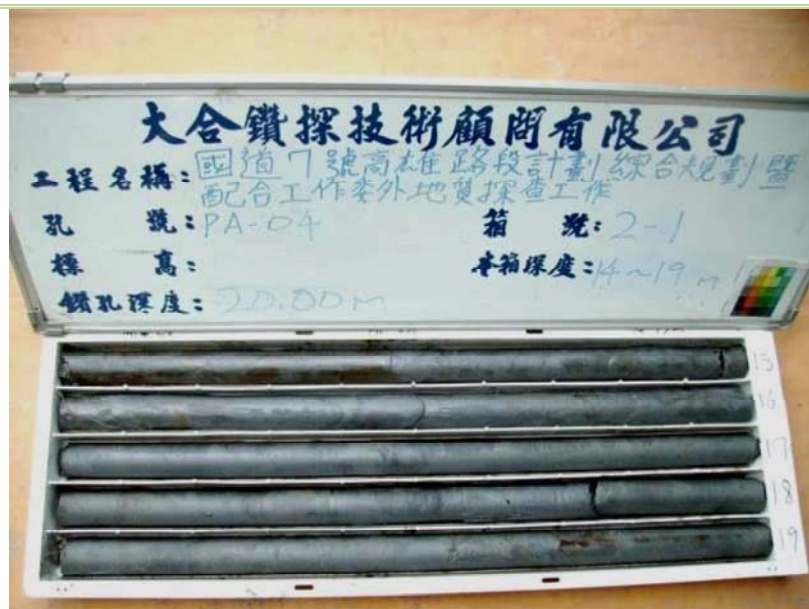 大合鑽探技術顧問有限公司
工程名稱：國道7號高雄路段計劃綜合規劃暨
配合工作委外地質探查工作
孔號：PA-04 箱號：2-1
標高： 本箱深度：14~19m
鑽孔深度：20.00m
15
16
17
18
19